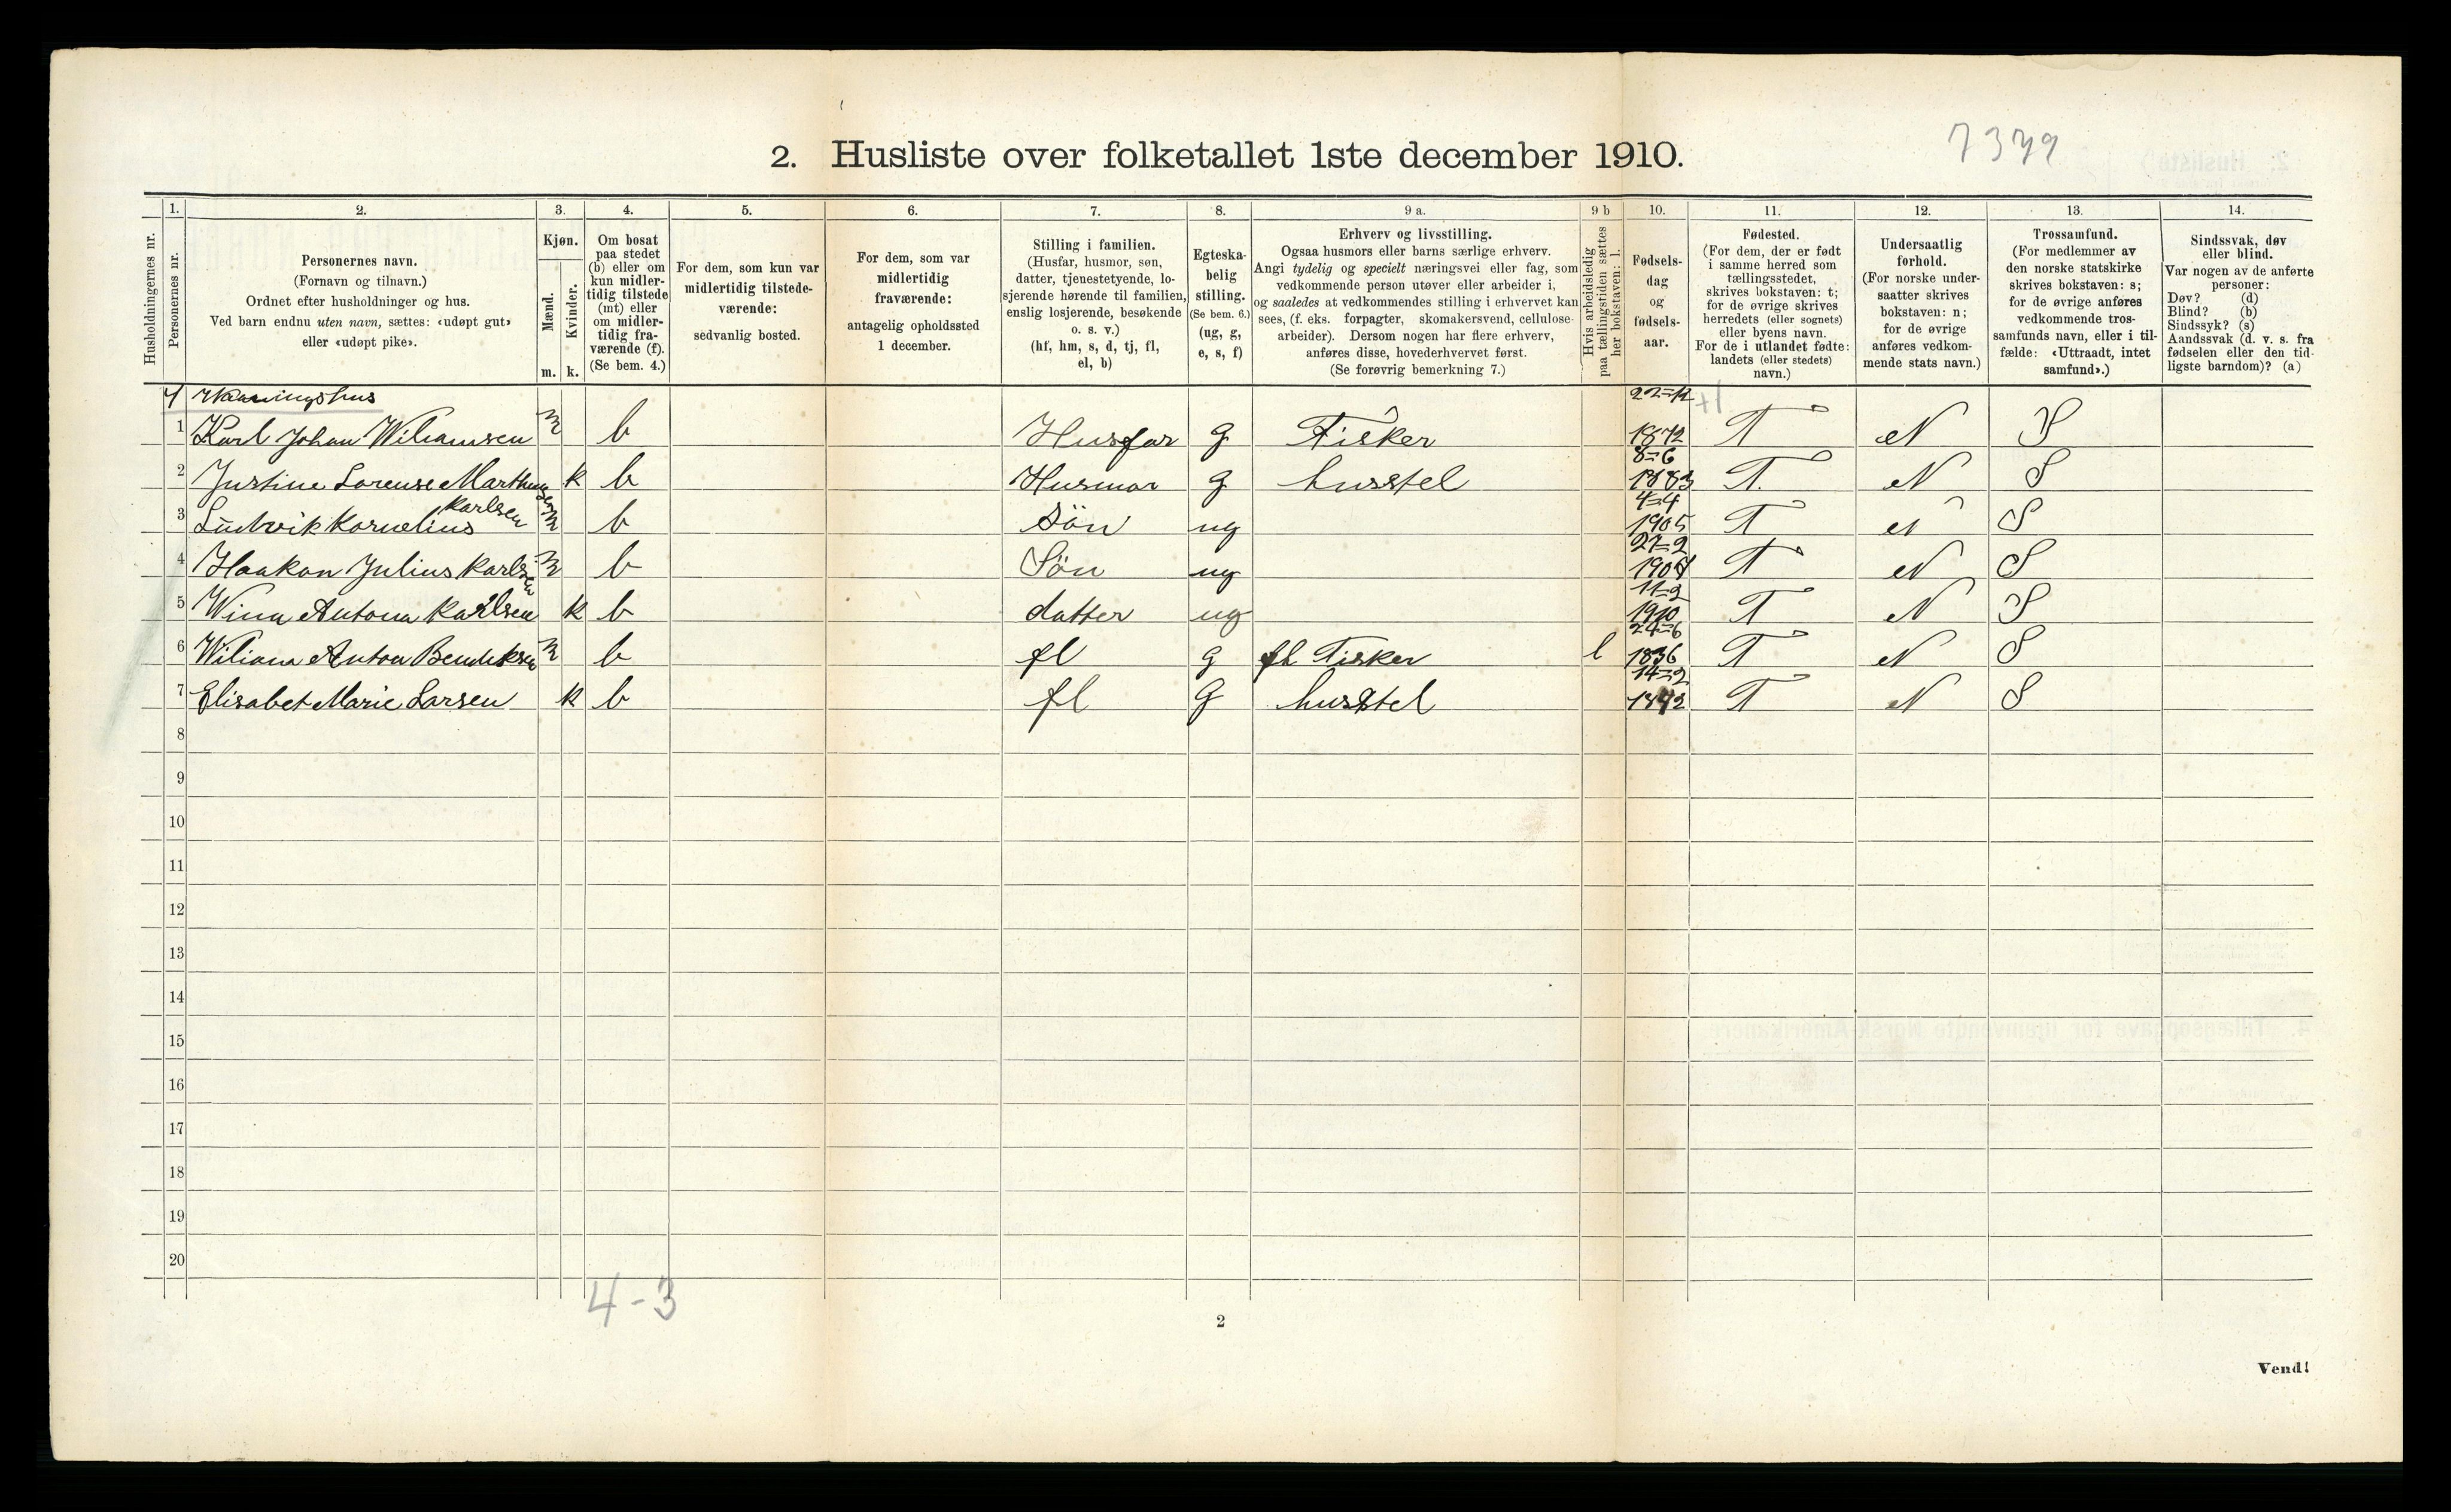 7379
2. Husliste over folketallet 1ste december 1910.
Husholdningernes nr.
1.
Personernes nr.
2.
Personernes navn.
(Fornavn og tilnavn.)
Ordnet efter husholdninger og hus.
Ved barn endnu uten navn, sættes: «udøpt gut»
eller «udøpt pike».
3.
Kjøn.
Mænd.
Kvinder.
m. k.
4.
Om bosat
paa stedet
(b) eller om
kun midler-
tidig tilstede
(mt) eller
om midler-
tidig fra-
værende (f).
(Se bem. 4.)
5.
For dem, som kun var
midlertidig tilstede-
værende:
sedvanlig bosted.
6.
For dem, som var
midlertidig
fraværende:
antagelig opholdssted
1 december.
7.
Stilling i familien.
(Husfar, husmor, søn,
datter, tjenestetyende, lo-
sjerende hørende til familien,
enslig losjerende, besøkende
o. s. v.)
(hf, hm, s, d, tj, fl,
el, b)
8.
Egteska-
belig
stilling.
(Se bem. 6.)
(ug, g,
e, s, f)
9 a.
Erhverv og livsstilling.
Ogsaa husmors eller barns særlige erhverv.
Angi tydelig og specielt næringsvei eller fag, som
vedkommende person utøver eller arbeider i,
og saaledes at vedkommendes stilling i erhvervet kan
sees, (f. eks. forpagter, skomakersvend, cellulose-
arbeider). Dersom nogen har flere erhverv,
anføres disse, hovederhvervet først.
(Se forøvrig bemerkning 7.)
9 b
Hvis arbeidsledig
paa tællingstiden sættes
her bokstaven: l.
10.
Fødsels-
dag
og
fødsels-
aar.
11.
Fødested.
(For dem, der er født
i samme herred som
tællingsstedet,
skrives bokstaven: t;
for de øvrige skrives
herredets (eller sognets)
eller byens navn.
For de i utlandet fødte:
landets (eller stedets)
navn.)
12.
Undersaatlig
forhold.
(For norske under-
saatter skrives
bokstaven: n;
for de øvrige
anføres vedkom-
mende stats navn.)
13.
Trossamfund.
(For medlemmer av
den norske statskirke
skrives bokstaven: s;
for de øvrige anføres
vedkommende tros-
samfunds navn, eller i til-
fælde: «Uttraadt, intet
samfund».)
14.
Sindssvak, døv
eller blind.
Var nogen av de anførte
personer:
Døv? (d)
Blind? (b)
Sindssyk? (s)
Aandssvak (d. v. s. fra
fødselen eller den tid-
ligste barndom)? (a)
Vaaningshus
1 Karl Johan Wiliamsen m b Husfar g Fisker 22=11 1872 T N S
2 Justine Lorense Marthinsen k b Husmor g husstel 8=6 1883 T. N S
3 Ludvik Kornelius Karlsen m b Sön ug 4=4 1905 T N S
4 Haakon Julius Karlsen m b Sön ug 27=2 T N S
5 Wina Antona Karlsen k b datter ug 11=2 1910 T N S
6 Anton Bendiksen m b fl g fh Fisker l 24=6 1836 T N S
7 Elisabet Marie Larsen k b fl g husstel 14=2 T N S
8
9
10
11
12
13
14
15
16
17
18
19
20
4-3
2
Vend!